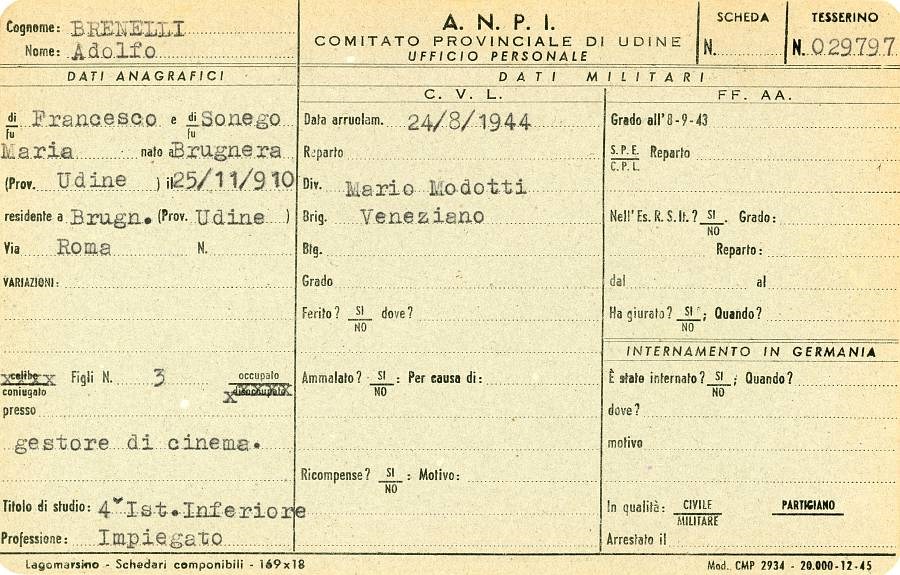 Cognome: BRENELLI
Nome: Adolfo
A. N. P. I.
COMITATO PROVINCIALE DI UDINE
UFFICIO PERSONALE
SCHEDA
N.
TESSERINO
N. 029797
DATI ANAGRAFICI
DATI MILITARI
di Francesco e di Sonego
fu fu
Maria nato a Brugnera
(Prov. Udine ) il 25/11/910
residente a Brugn. (Prov. Udine )
Via Roma N.
VARIAZIONI:
celibe Figli N. 3 occupato
coniugato disoccupato
presso
gestore di cinema.
Titolo di studio: 4ˇ Ist.Inferiore
Professione: Impiegato
C. V. L.
Data arruolam. 24/8/1944
Reparto
Div. Mario Modotti
Brig. Veneziano
Btg.
Grado
Ferito? SI dove?
NO
Ammalato? SI : Per causa di:
NO
Ricompense? SI : Motivo:
NO
FF. AA.
Grado all'8-9-43
S.P.E. Reparto
C.P.L.
Nell'Es. R. S. It.? SI . Grado:
NO
Reparto:
dal al
Ha giurato? SI ; Quando?
NO
INTERNAMENTO IN GERMANIA
È stato internato? SI ; Quando?
NO
dove?
motivo
In qualità: CIVILE PARTIGIANO
MILITARE
Arrestato il
Lagomarsino - Schedari componibili - 169x18
Mod. CMP 2934 - 20.000-12-45